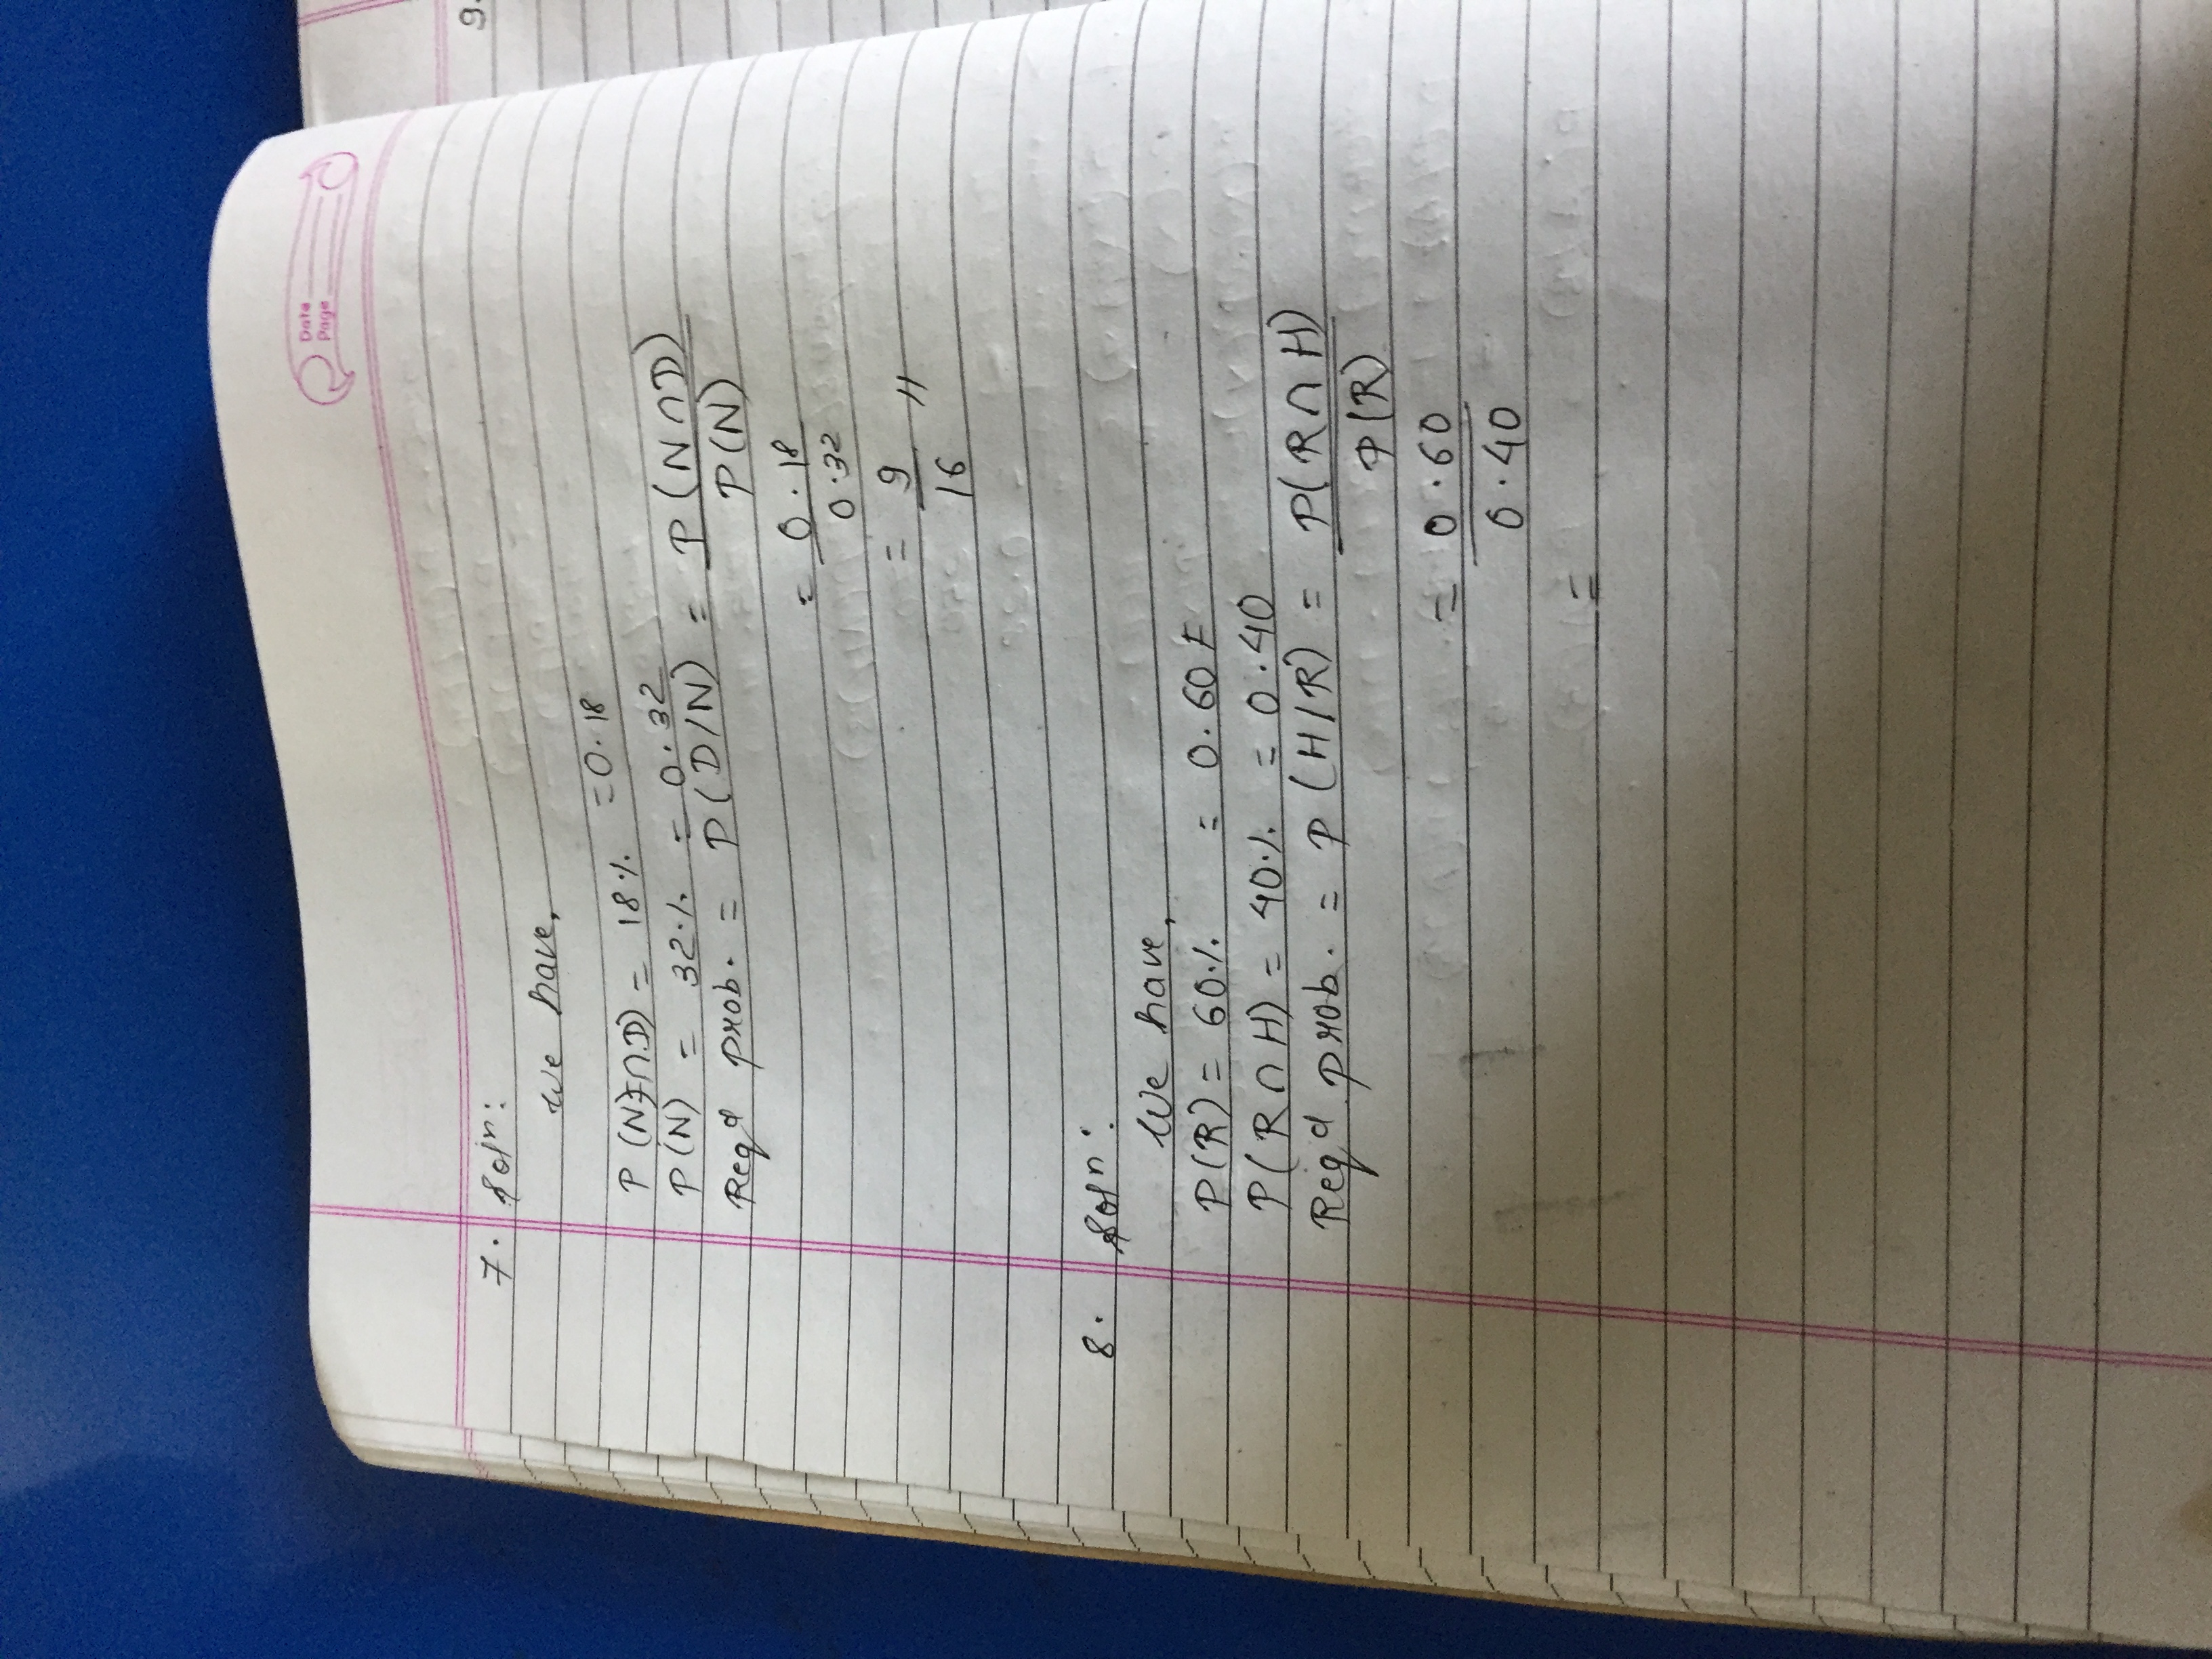 Date
Page
9.
7. Solⁿ:
We have,
P(N∩D) = 18% = 0.18
P(N) = 32% = 0.32
Reqᵈ prob. = P(D/N) = P(N∩D)
P(N)
= 0.18
0.32
= 9 //
16
8. Solⁿ:
We have,
P(R) = 60% = 0.60
P(R∩H) = 40% = 0.40
Reqᵈ prob. = P(H/R) = P(R∩H)
P(R)
= 0.60
0.40
=